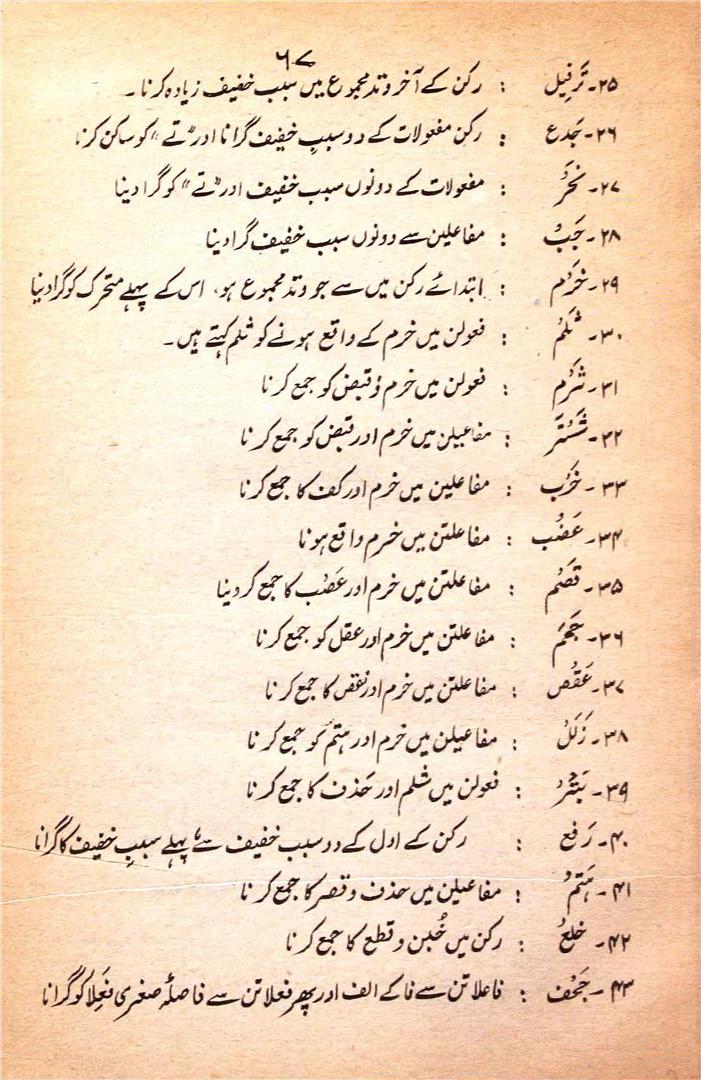 ۶۷
۲۵۔ تَرفِیل : رکن کے آخر وتد مجموع میں سبب خفیف زیادہ کرنا ۔
۲۶۔ جَدع : رکن مفعولات کے دو سببِ خفیف گرانا اور "تے" کو ساکن کرنا
۲۷۔ نَحَرْ : مفعولات کے دونوں سبب خفیف اور "تے" کو گرا دینا
۲۸۔ جَبْ : مفاعلین سے دونوں سبب خفیف گرا دینا
۲۹۔ خَرْم : ابتدائے رکن میں سے جو وتد مجموع ہو، اس کے پہلے متحرک کو گرا دینا
۳۰۔ ثَلَمْ : فعولن میں خرم کے واقع ہونے کو ثلم کہتے ہیں ۔
۳۱۔ ثَرْم : فعولن میں خرم وُ قبض کو جمع کرنا
۳۲۔ شَتَرْ : مفاعیلن میں خرم اور قبض کو جمع کرنا
۳۳۔ خَرْب : مفاعلین میں خرم اور کف کا جمع کرنا
۳۴۔ عَضْب : مفاعلتن میں خرم واقع ہونا
۳۵۔ قَصْم : مفاعلتن میں خرم اور عَصْب کا جمع کر دینا
۳۶۔ جَحَمْ : مفاعلتن میں خرم اور عقل کو جمع کرنا
۳۷۔ عَقْص : مفاعلتن میں خرم اور نقص کا جمع کرنا
۳۸۔ زَلَلْ : مفاعیلن میں خرم اور ہتم کو جمع کرنا
۳۹۔ بَتَرْ : فعولن میں شلم اور حَذف کا جمع کرنا
۴۰۔ رَفع : رکن کے اول کے دو سبب خفیف سے، پہلے سببِ خفیف کا گرانا
۴۱۔ ہَتَمْ : مفاعیلن میں حذف و قصر کا جمع کرنا
۴۲۔ خلعْ : رکن میں خُبن و قطع کا جمع کرنا
۴۳۔ جَحْف : فاعلاتن سے فا کے الف اور پھر فعلاتن سے فاصلۂ صغری فَعِلَا کو گرانا